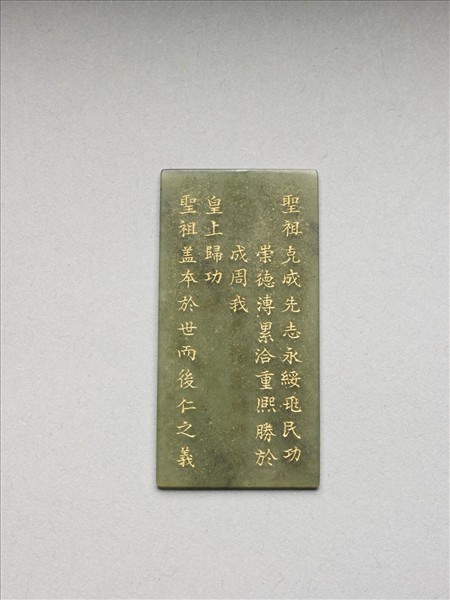 聖祖克成先志永綏兆民功
崇德溥累洽重熙勝於
成周我
皇上歸功
聖祖盖夲於世而後仁之義